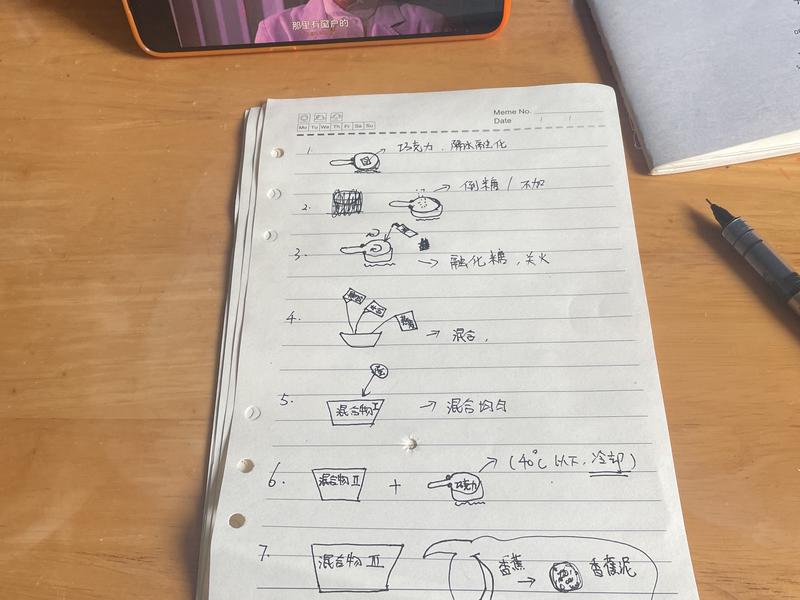 那里有窗户的
Meme No.
Date / /
Mo Tu We Th Fr Sa Su
1. 巧克力、隔水融化
2. 倒糖 / 不加
3. 融化糖,关火
4. 混合,
5. 混合物I 混合均匀
6. 混合物 II + 巧克力 (40℃以下,冷却)
7. 混合物 III 香蕉 香蕉泥